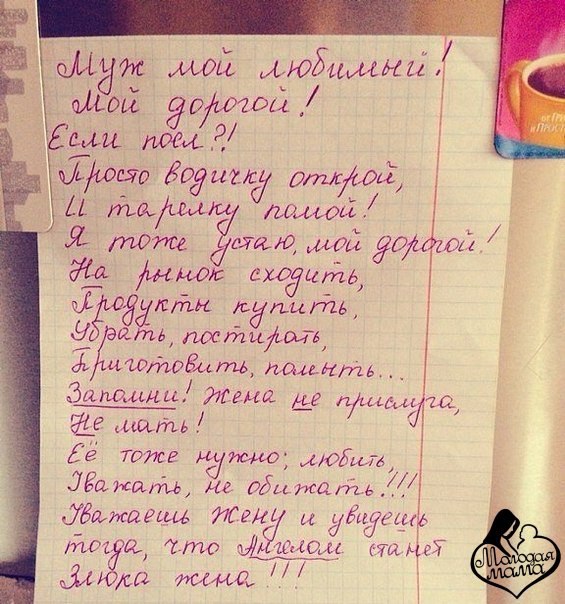 Муж мой любимый!
Мой дорогой!
Если поел?!
Просто водичку открой,
И тарелку помой!
Я тоже устаю, мой дорогой!
На рынок сходить,
Продукты купить,
Убрать, постирать,
Приготовить, помыть...
Запомни! Жена не прислуга,
Не мать!
Её тоже нужно; любить,
Уважать, не обижать!!!
Уважаешь жену и увидешь
тогда, что Ангелом станет
Злюка жена!!!
Молодая
мама